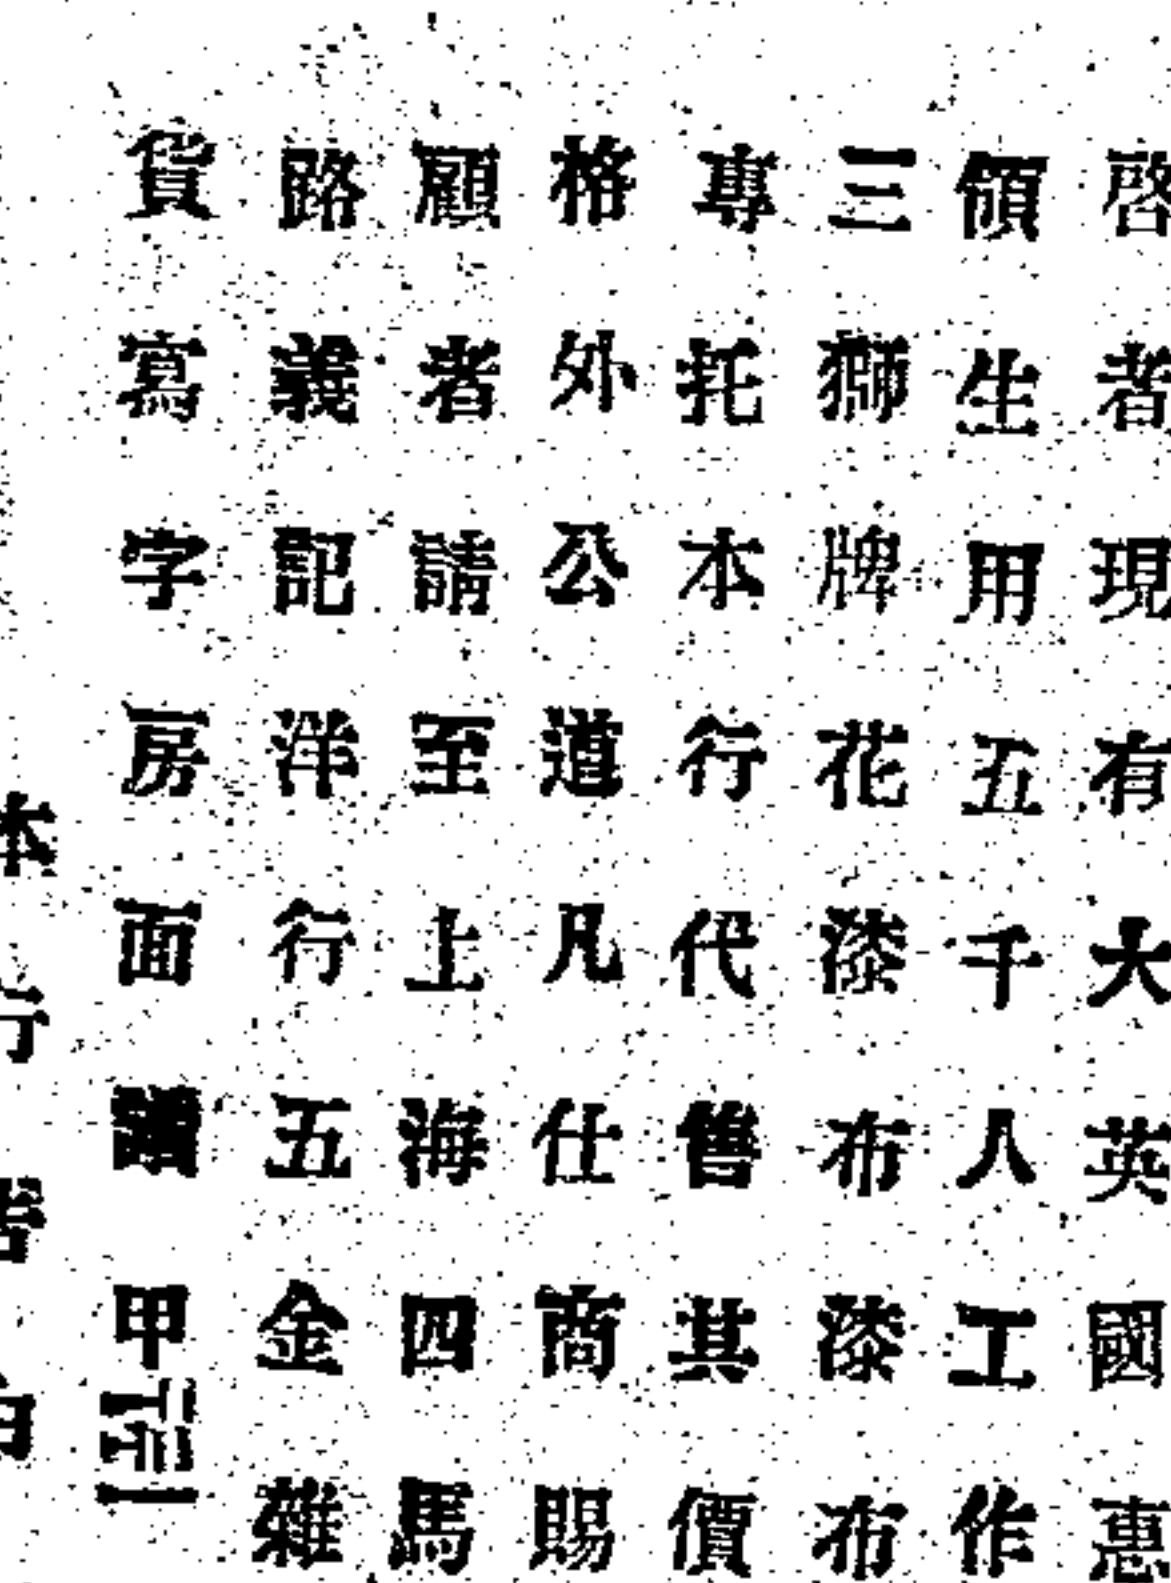 啓者現有大英國惠
領生用五千人工作
三獅牌花漆布漆布
專托本行代售其價
格外公道凡仕商賜
顧者請至上海四馬
路義記洋行五金雜
貨寫字房面議甲
本行